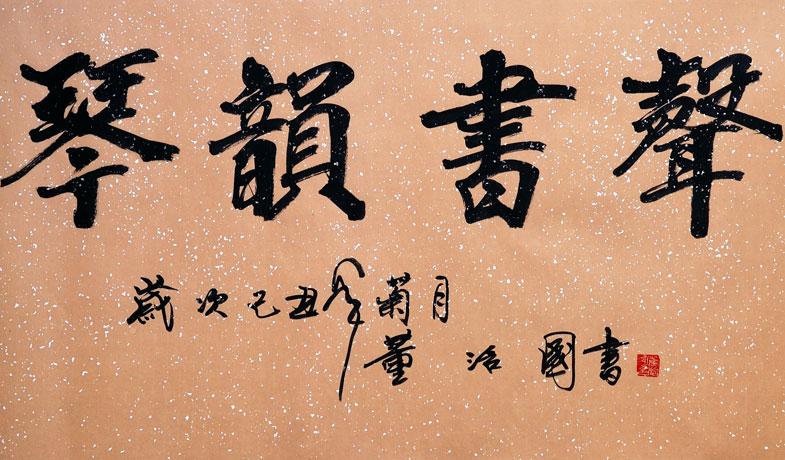 琴韻書聲
歲次己丑年菊月
董治國書